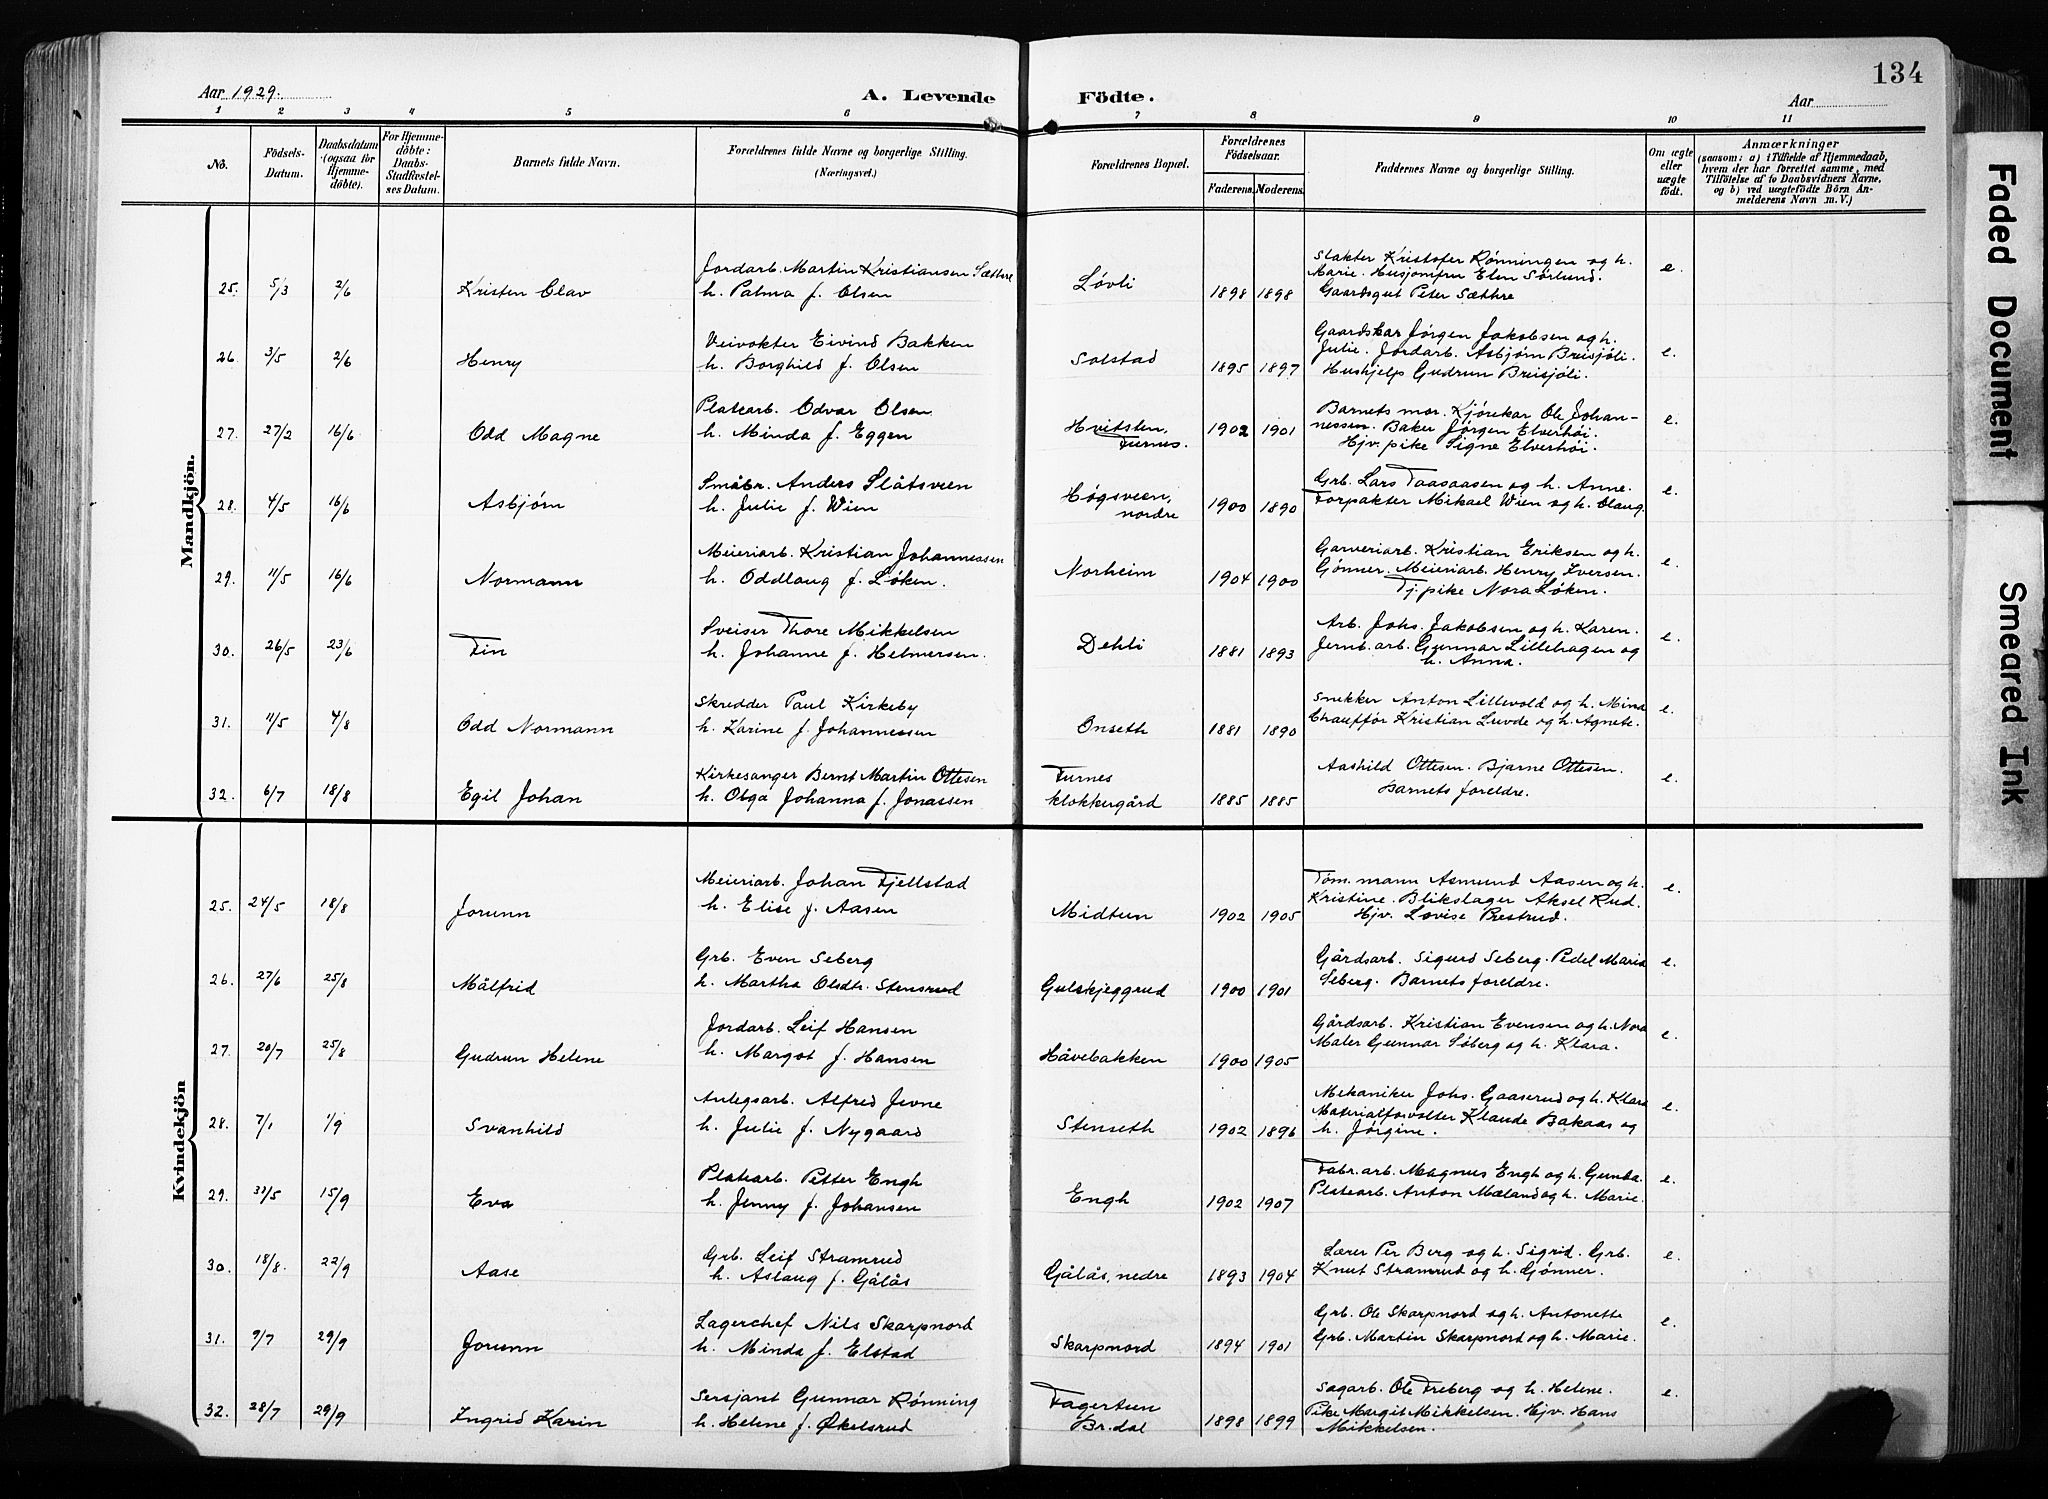 134
Aar 1929. A. Levende Födte. Aar
1 2 3 4 5 6 7 8 9 10 11
No.
Födsels-Datum.
Daabsdatum (ogsaa for Hjemmedöbte).
For Hjemmedöbte: Daabs-Stadfæstelses Datum.
Barnets fulde Navn.
Forældrenes fulde Navne og borgerlige Stilling. (Næringsvei.)
Forældrenes Bopæl.
Forældrenes Födselsaar.
Faderens. Moderens.
Faddernes Navne og borgerlige Stilling.
Om ægte eller uægte födt.
Anmærkninger
(saasom: a) i Tilfælde af Hjemmedaab,
hvem der har forrettet samme, med
Tilföielse af to Daabsvidners Navne,
og b) ved uægtefödte Börn An-
melderens Navn m. V.)
Mandkjön.
25. 5/3 2/6 Kristen Olav
Jordarb. Martin Kristiansen Sæthre
h. Palma f. Olsen
Løvli 1898 1898
Slakter Kristofer Rønningen og h.
Marie. Husjomfru Elen Sörlund.
Gaardsgut Peter Sæthre
e.
26. 3/5 2/6 Henry
Veivokter Eivind Bakken
h. Borghild f. Olsen
Solstad 1895 1897
Gaardskar Jørgen Jakobsen og h.
Julie. Jordarb. Asbjørn Breisjøli.
Hushjelp Gudrun Breisjøli.
e.
27. 27/2 16/6 Odd Magne
Platearb. Odvar Olsen
h. Minda f. Eggen
Hvitsten,
Furnes. 1902 1901
Barnets mor. Kjørekar Ole Johan-
nessen. Baker Jørgen Elverhøi.
Hjv. pike Signe Elverhøi.
e.
28. 4/5 16/6 Asbjørn
Småbr. Anders Slåtsveen
h. Julie f. Wien
Høgsveen,
nordre 1900 1890
Grb. Lars Taasaasen og h. Anne.
Forpakter Mikael Wien og h. Olaug.
e.
29. 11/5 16/6 Normann
Meieriarb. Kristian Johannessen
h. Oddlaug f. Løken.
Norheim 1904 1900
Garveriarb. Kristian Eriksen og h.
Gønner. Meieriarb. Henry Iversen.
Tj. pike Nora Løken.
e.
30. 26/5 23/6 Fin
Sveiser Thore Mikkelsen
h. Johanne f. Helmersen.
Dehli 1881 1893
Arb. Johs. Jakobsen og h. Karen.
Jernb. arb. Gunnar Lillehagen og
h. Anna.
e.
31. 11/5 4/8 Odd Normann
Skredder Paul Kirkeby
h. Karine f. Johannessen
Onseth 1881 1890
Snekker Anton Lillevold og h. Mina
Chauffør Kristian Luvde og h. Agnete.
e.
32. 6/7 18/8 Egil Johan
Kirkesanger Bernt Martin Ottesen
h. Olga Johanna f. Jonassen
Furnes
klokkergård 1885 1885
Aashild Ottesen. Bjarne Ottesen.
Barnets foreldre.
e.
Kvindekjön
25. 24/5 18/8 Jorunn
Meieriarb. Johan Fjellstad
h. Elise f. Aasen
Midtun 1902 1905
Töm. mann Asmund Aasen og h.
Kristine. Blikslager Aksel Rud.
Hjv. Lovise Prestrud.
e.
26. 27/6 25/8 Målfrid
Grb. Even Seberg
h. Martha Olsdtr. Stensrud
Gulskjeggrud 1900 1901
Gårdsarb. Sigurd Seberg. Pedel Maria
Seberg. Barnets foreldre.
e.
27. 20/7 25/8 Gudrun Helene
Jordarb. Leif Hansen
h. Margot f. Hansen
Håvebakken 1900 1905
Gårdsarb. Kristian Evensen og h. Nora
Maler Gunnar Søberg og h. Klara.
e.
28. 7/1 1/9 Svanhild
Anlegsarb. Alfred Jevne
h. Julie f. Nygaard
Stenseth 1902 1896
Mekaniker Johs. Gaaserud og h. Klara
Materialforvalter Klaude Bakaas og
h. Jørgine.
e.
29. 31/5 15/9 Eva
Platearb. Petter Engh
h. Jenny f. Johansen
Engh 1902 1907
Fabr. arb. Magnus Engh og h. Gunda.
Platearb. Anton Mæland og h. Marie.
e.
30. 18/8. 22/9 Aase
Grb. Leif Stramrud
h. Aslaug f. Gålås
Gålås, nedre 1893 1904
Lærer Per Berg og h. Sigrid. Grb.
Knut Stramrud og h. Gønner.
e.
31. 9/7 29/9 Jorunn
Lagerchef Nils Skarpnord
h. Minda f. Elstad
Skarpnord 1894 1901
Grb. Ole Skarpnord og h. Antonette
Grb. Martin Skarpnord og h. Marie.
e.
32. 28/7 29/9 Ingrid Karin
Sersjant Gunnar Rønning
h. Helene f. Økelsrud
Fagertun
Br.dal 1898 1899
Sagarb. Ole Freberg og h. Helene.
Pike Margit Mikkelsen. Hjv. Hans
Mikkelsen.
e.
Faded Document
Smeared Ink